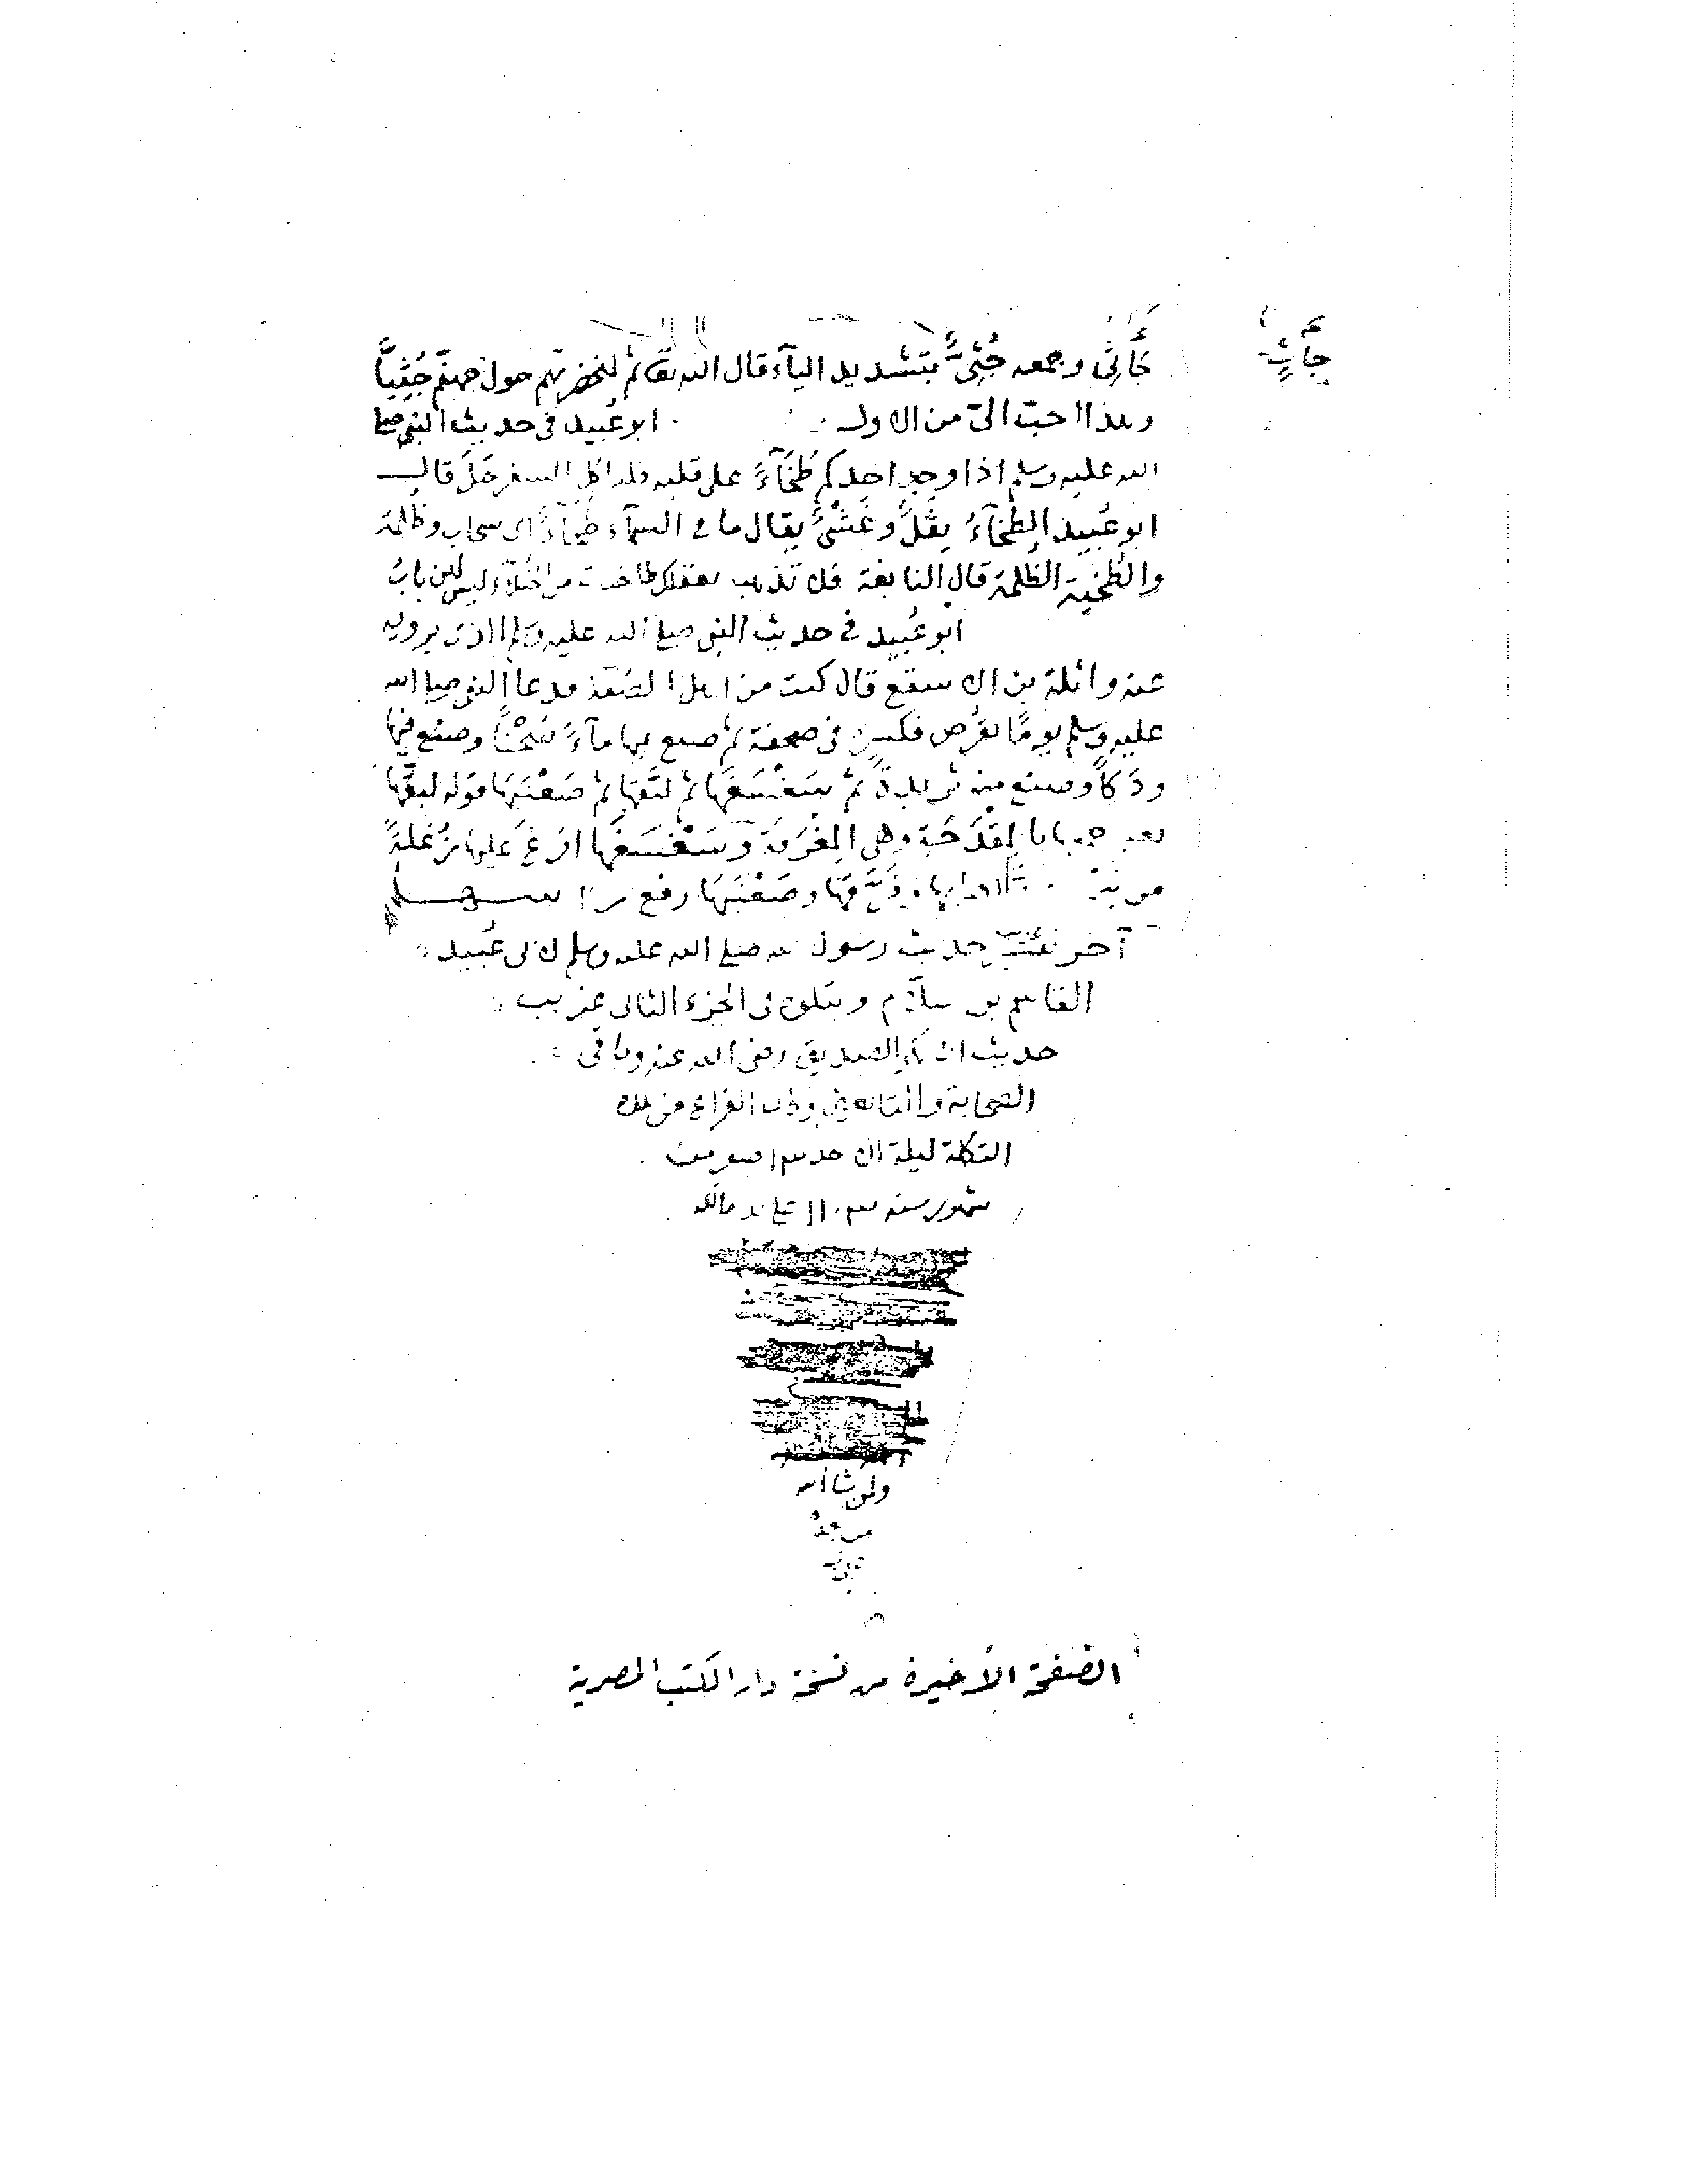 جاثٍ
جَاثِي وجمعه جُثِيٌّ بتشديد اليآء قال الله تعا ثم لنحضرنهم حول جهنم جُثِيًّا
وهذا احبّ الىّ من الاول ابو عُبيد فى حديث النبى صلى
الله عليه وسلم اذا وجد احدكم طَخَآءً على قلبه فلياكل السفرجَلَ قال
ابو عُبيد الطخَآءُ ثِقَلٌ وغَشْىٌ يقال ما فى السمآء طخآءٌ اى سحاب وظلمة
والطُخية الظلمة قال النابغة فلا تذهب بعقلك طاخيات من الخُيَلآء ليس لهن بابُ
ابو عُبيد فى حديث النبى صلى الله عليه وسلم الذى يرويه
عنه واثلة بن الاسقع قال كنت من اهل الصُفّة فدعا النبى صلى الله
عليه وسلم يومًا بقُرص فكسره فى صحفة ثم صنع فيها مآءً سُخْنًا وصنع فيها
وَدَكًا وصنع منه ثريدة ثم سَغْسَغَها ثم لبَّقها ثم صَعْنَبَهَا قوله لبقها
جمعها بالمِقْدَحَة وهى المِغْرَفة وسَغْسَغَها افرغ عليها
وصَعْنَبَهَا رفع راسها
آخر غريب حديث رسول الله صلى الله عليه وسلم لابى عُبيد
القاسم بن سلّام ويتلوه فى الجزء الثانى غريب
حديث ابى بكر الصديق رضى الله عنه وباقى
الصحابة والتابعين وكان الفراغ من هذه
التكملة ليلة الاحد
شهور سنه
ان شا الله
الصفحة الأخيرة من نسخة دار الكتب المصرية